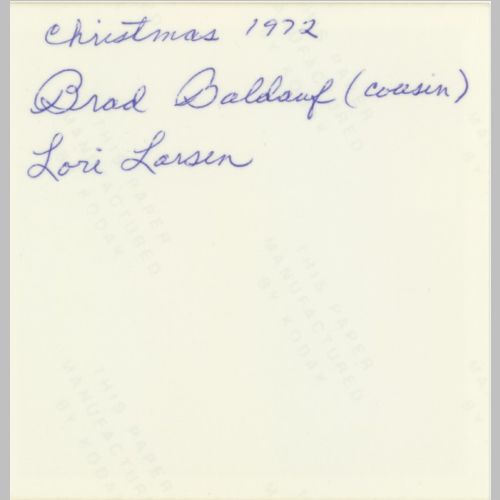 Christmas 1972
Brad Baldauf (cousin)
Lori Larsen
THIS PAPER
MANUFACTURED
BY KODAK
THIS PAPER
MANUFACTURED
BY KODAK
THIS PAPER
MANUFACTURED
BY KODAK
THIS PAPER
MANUFACTURED
BY KODAK